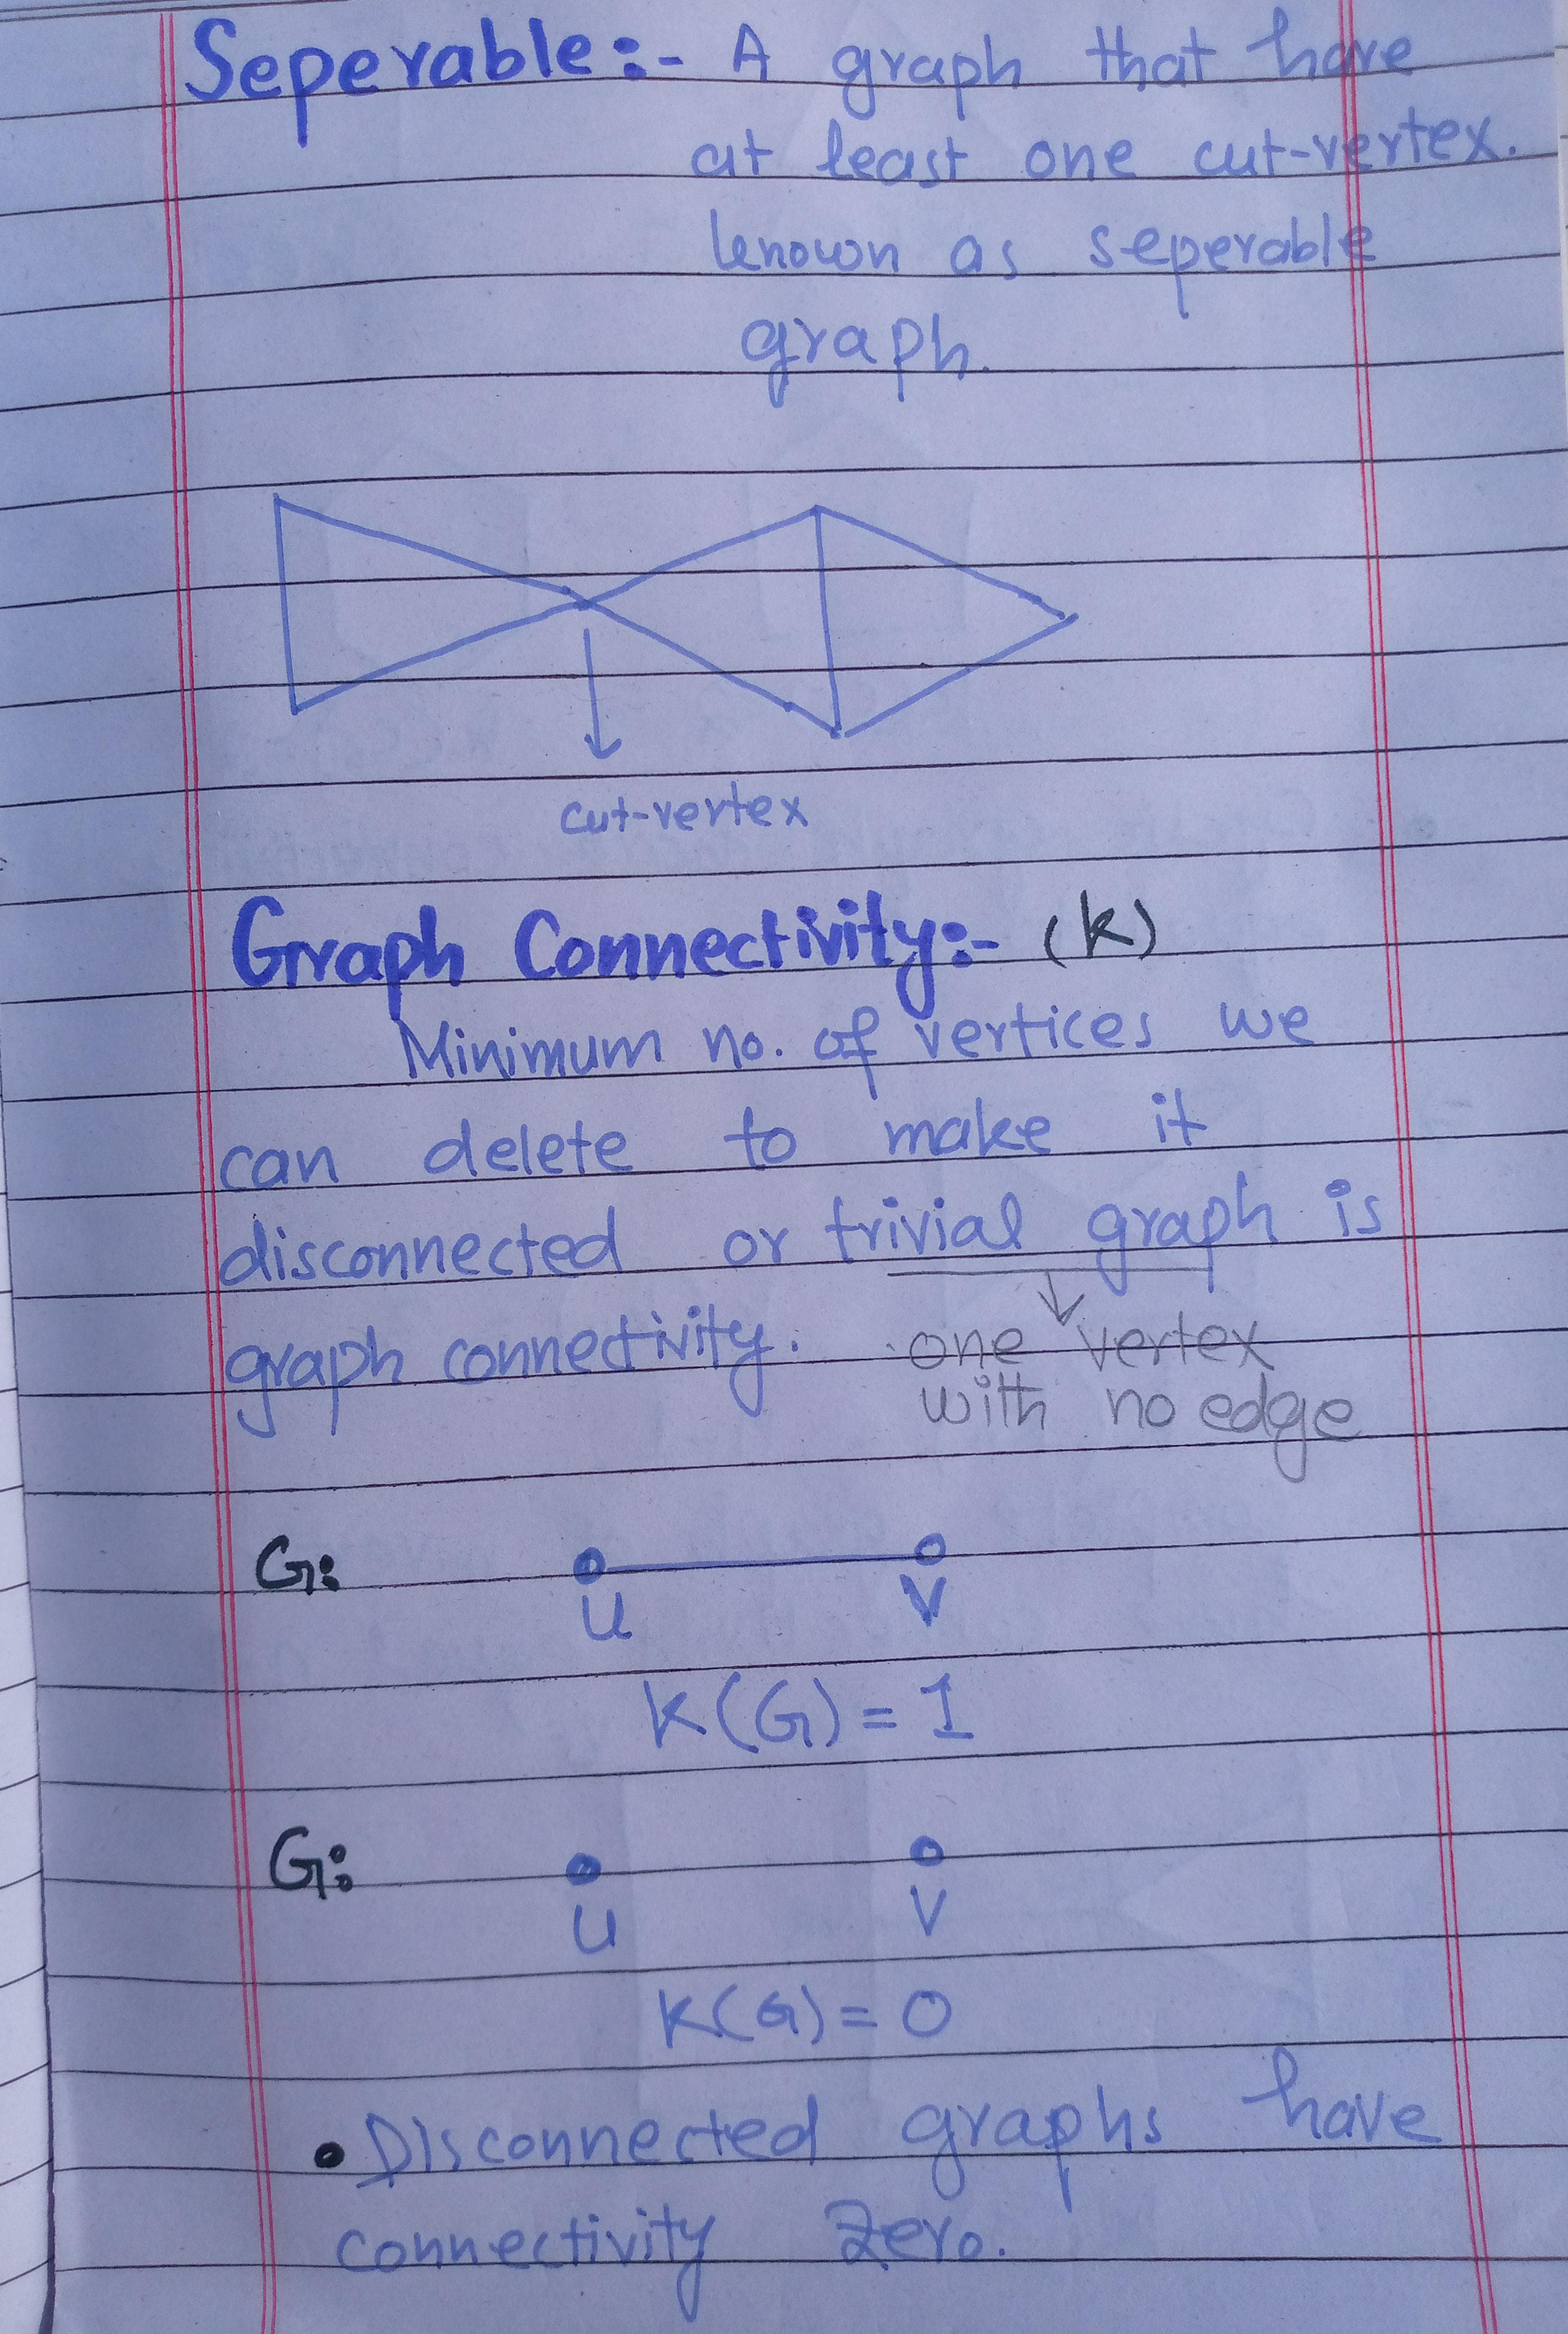 Seperable:- A graph that have
at least one cut-vertex.
known as seperable
graph.
cut-vertex
Graph Connectivity:- (K)
Minimum no. of vertices we
can delete to make it
disconnected or trivial graph is
graph connectivity. one vertex
with no edge
G:
U V
K(G) = 1
G:
U V
K(G) = 0
• Disconnected graphs have
connectivity zero.